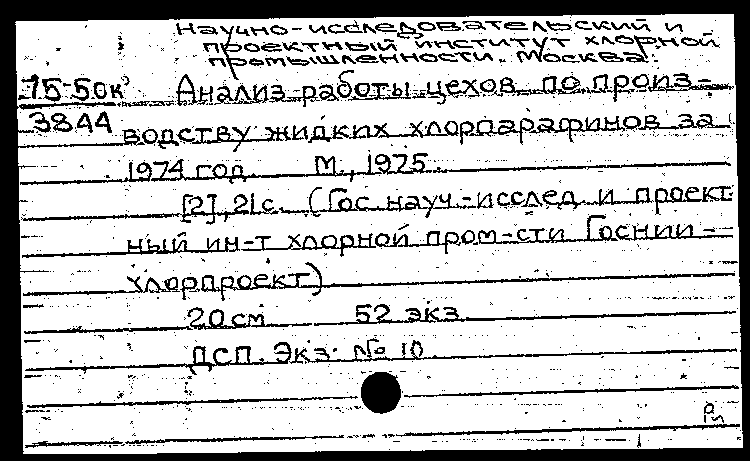 Научно-исследовательский и
проектный институт хлорной
промышленности. Москва.
75-50к Анализ работы цехов по произ-
3844 водству жидких хлорпарафинов за
1974 год М., 1975.
[2], 21 с. (Гос. науч.-исслед. и проект
ный ин-т хлорной пром-сти Госнии-
хлорпроект)
20 см 52 экз.
ДСП. Экз. № 10